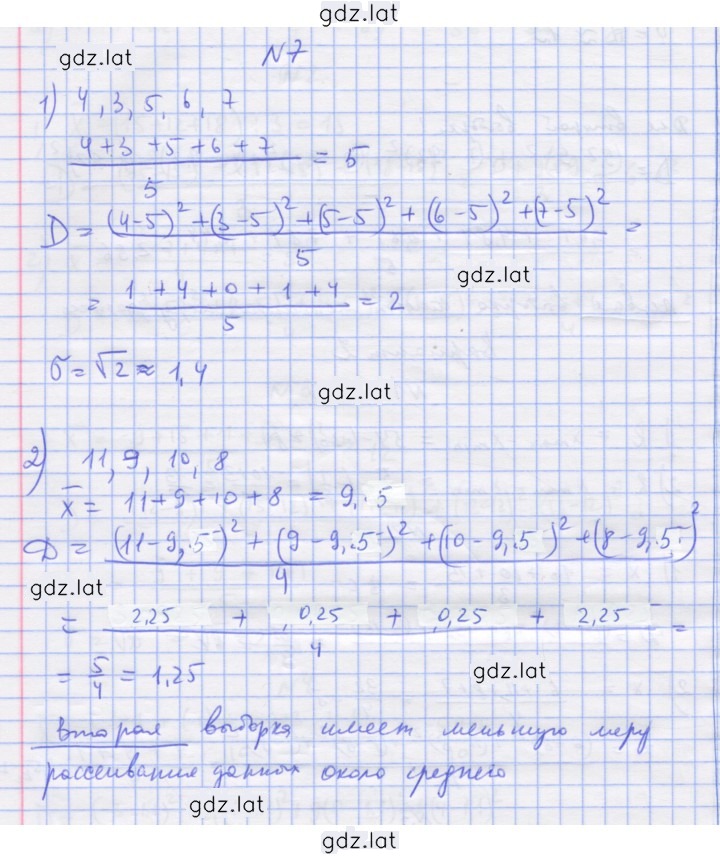 gdz.lat
gdz.lat
N7
1) 4, 3, 5, 6, 7
4+3+5+6+7 / 5 = 5
D = (4-5)² + (3-5)² + (5-5)² + (6-5)² + (7-5)² / 5 =
gdz.lat
= 1 + 4 + 0 + 1 + 4 / 5 = 2
σ = √2 ≈ 1,4
gdz.lat
2) 11, 9, 10, 8
x̄ = 11+9+10+8 = 9,5
D = (11-9,5)² + (9-9,5)² + (10-9,5)² + (8-9,5)² / 4
gdz.lat
= 2,25 + 0,25 + 0,25 + 2,25 / 4 =
= 5/4 = 1,25
gdz.lat
Вторая выборка имеет меньшую меру
рассеивания данных около среднего
gdz.lat
gdz.lat